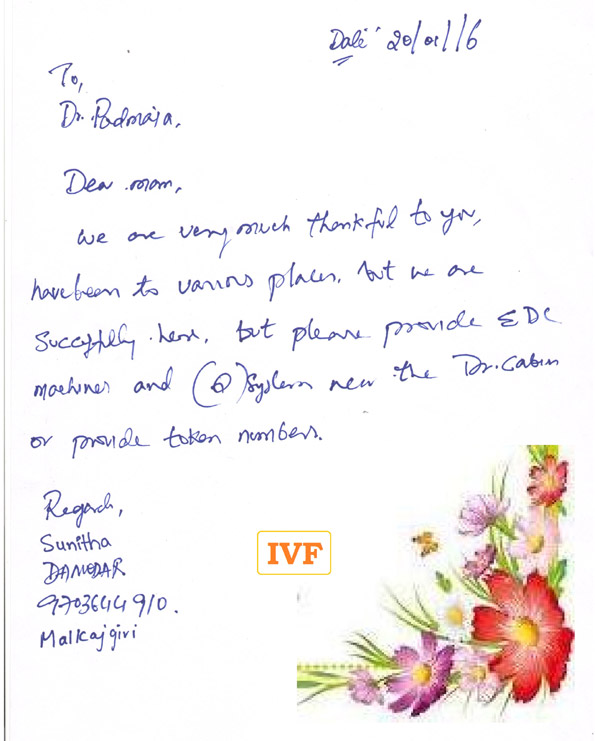 Date: 20/01/16
To,
Dr. Padmaja,
Dear mam,
we are very much thankful to you,
have been to various places, but we are
Succesfully here, but please provide EDC
machines and (Q) System near the Dr. Cabin
or provide token numbers.
Regards,
Sunitha
DAMODAR
9703644910.
Malkajgiri
IVF